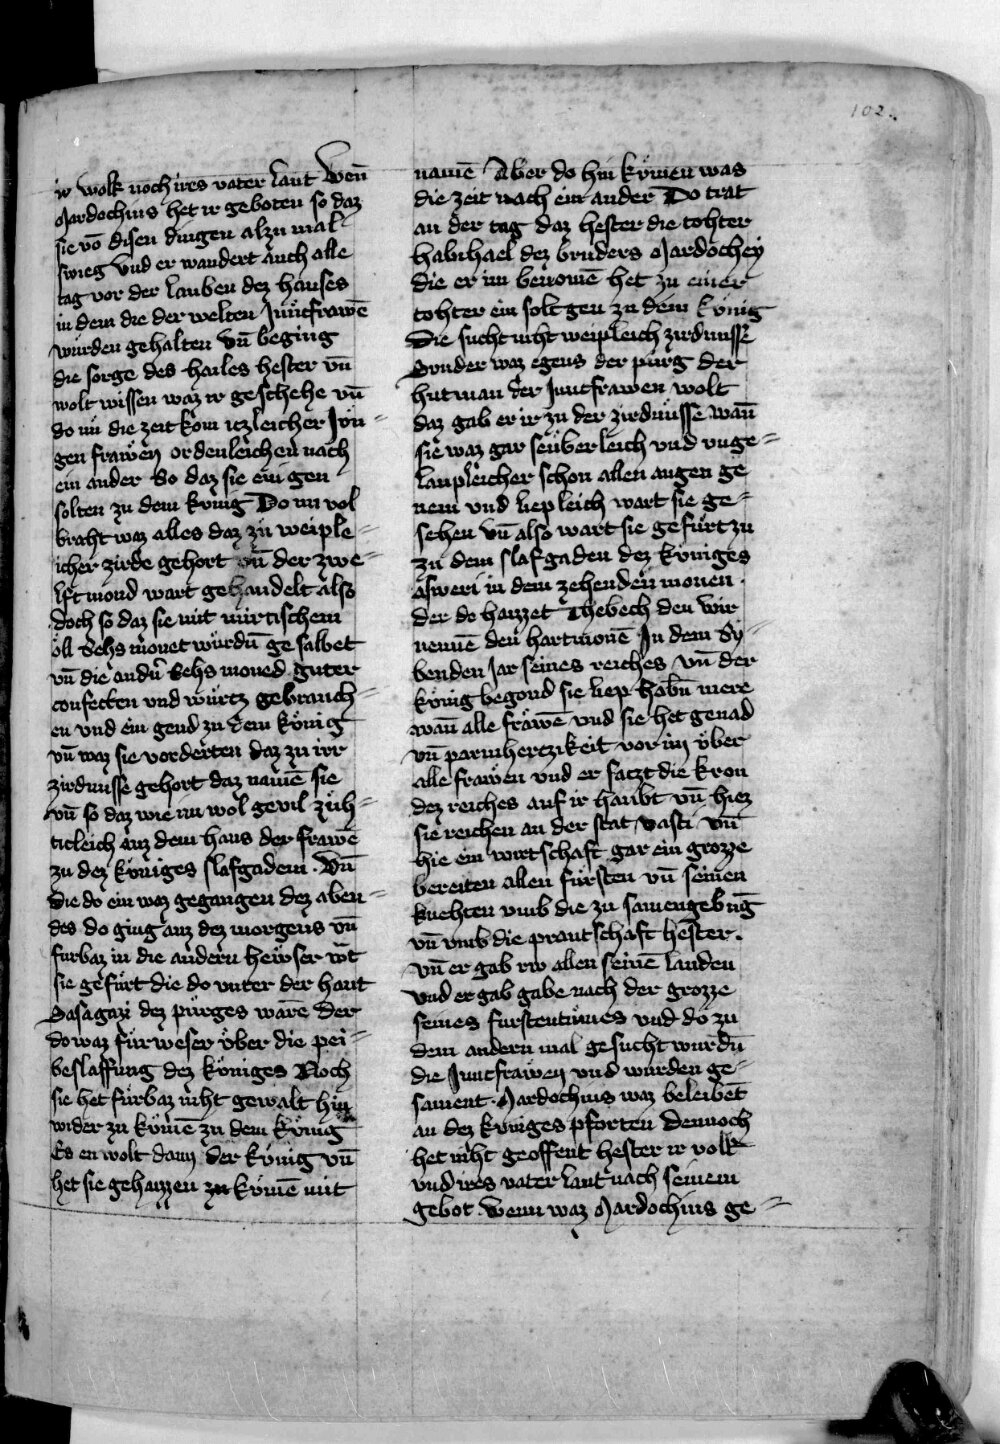 102.
ir volk noch ires vater lant Wen̄
Mardochius het ir geboten so daz
sie vō disen dingen alzu mal
sweig vnd er wandert auch alle
tag vor der lauben dez hauses
in dem die der welten Junͦcfrawē
wurden gehalten vn̄ beging
die sorge des hailes hester vn̄
wolt wissen waz ir geschehe vn̄
do nu die zeit kom itzleicher Jun⸗
gen frawen ordenleichen nach
ein ander So daz sie ein gen
solten zu dem kͦnig Do nu vol
braht waz alles daz zu weiple⸗
icher zirde gehort vn̄ der zwe⸗
lft mond wart gehandelt also
doch so daz sie mit mirtischem
ͦll Sehs monet wͦrdn̄ ge salbet
vn̄ die andn̄ Sehs moned guter
confecten vnd wͦrtz gebrauch⸗
en vnd ein gend zu dem kͦnig
vn̄ waz sie vorderten daz zu irr
zirdnusse gehort daz namē sie
vn̄ so daz wie nu wol gevil zͦh⸗
ticleich auz dem haus der frawē
zu dez kͦniges slafgadem · Vn̄
die do ein waz gegangen dez aben⸗
des do ging auz dez morgens vn̄
furbaz in die andern hewser wͭt
sie gefͦrt die do vnter der hant
Sasagazi dez pͦrges warē Der
do waz fͦrweser ͦber die pei⸗
beslaffung dez kͦniges Noch
sie het fͦrbaz niht gewalt hin
wider zu kͦmē zu dem kͦnig
Es en wolt dann der kͦnig vn̄
het sie gehaizzen zu kͦmē mit
namē Aber do hin kͦmen was
die zeit nach ein ander Do trat
an der tag daz hester die tohter
habihael dez bruders Mardochey
die er im benomē het zu einer
tohter ein solt gen zu dem kͦnig
Die sucht niht weipleich zirdnusse
Sunder waz egeus der purg der
hutman der Juncfrawen wolt
daz gab er ir zu der zirdnͦsse wan̄
sie waz gar seuberleich vnd vnge⸗
laupleicher schon allen augen ge
nem vnd liepleich wart sie ge⸗
sehen vn̄ also wart sie gefͦrt zu
zu dem slafgaden dez kͦniges
asweri in dem zehenden monen ·
der do haizzet Thebech den wir
nennē den hartmonē In dem Sy⸗
benden Jar seines reiches vn̄ der
kͦnig begond sie liep habn̄ mere
wan̄ alle frͣwē vnd sie het genad
vn̄ parmherczikeit vor im ͦber
alle frawen vnd er saczt die kron
dez reiches auf ir haubt vn̄ hiez
sie reichen an der stat vasti vn̄
hie ein wirtschaft gar ein grozze
bereiten allen fͦrsten vn̄ seinen
knehten vmb die zu samengebūg
vn̄ vmb die prautschaft hester.
vn̄ er gab rw allen seinē landen
vnd er gab gabe nach der grozze
seines furstentumes vnd do zu
dem andern mal gesucht wurdn̄
die Juncfrawen vnd wurden ge⸗
sament · Mardochius waz beleibēt
an dez kͦniges pforten dennoch
het niht geoffent hester ir volk
vnd ires vater lant nach seinem
gebot · wenn waz Mardochius ge⸗